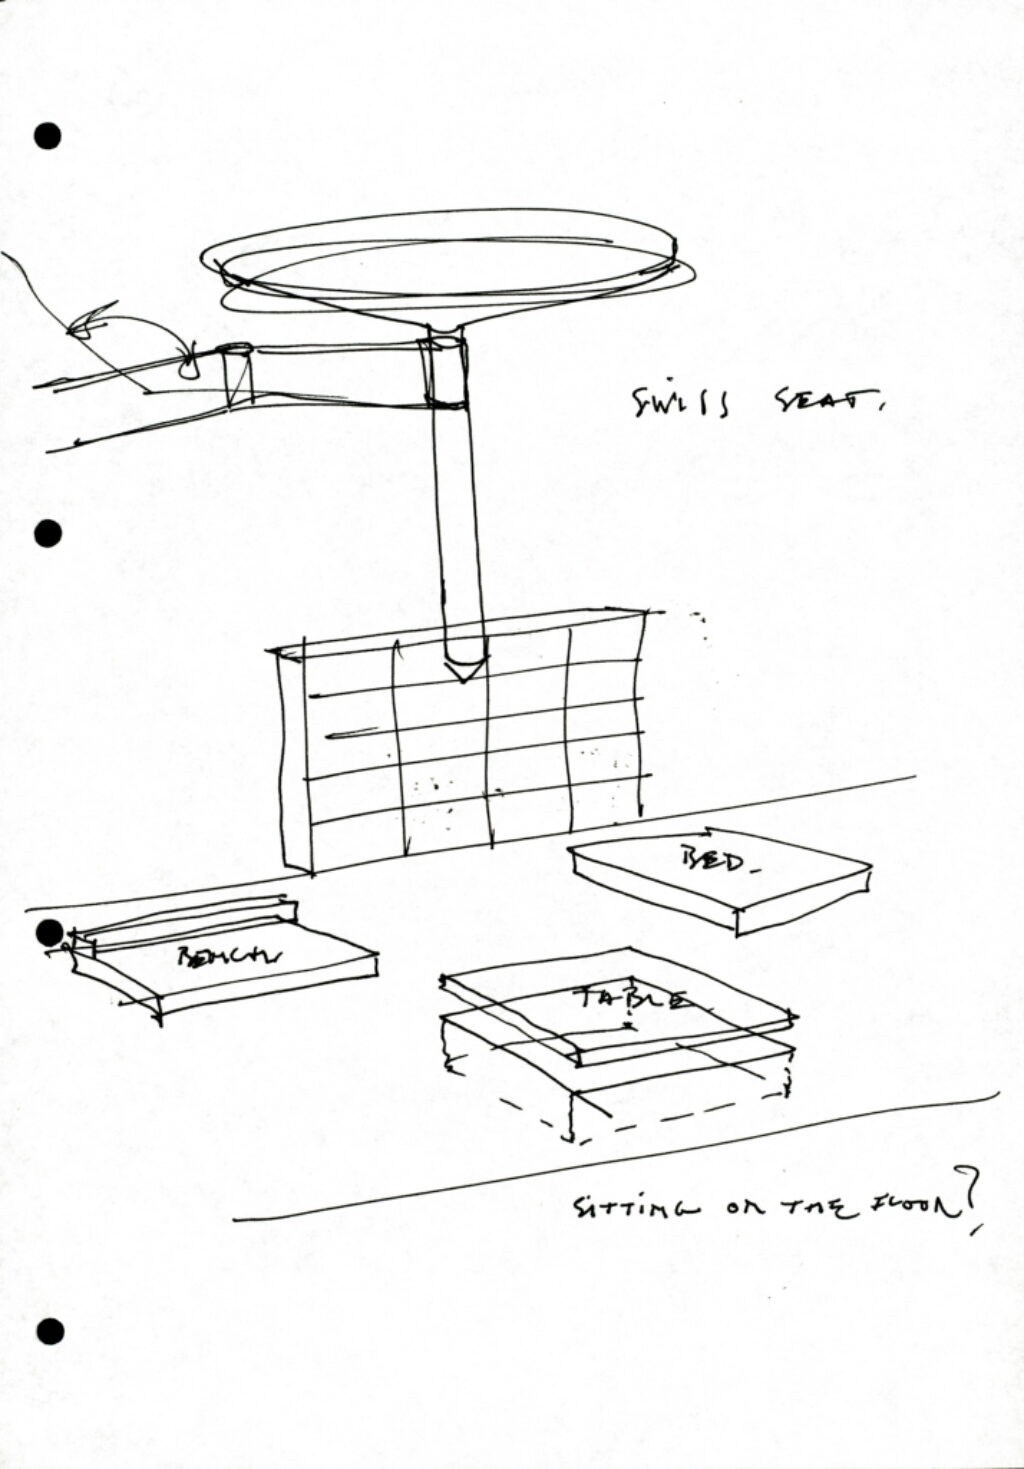 SWISS SEAT.
BED.
BENCH
TABLE
SITTING ON THE FLOOR?